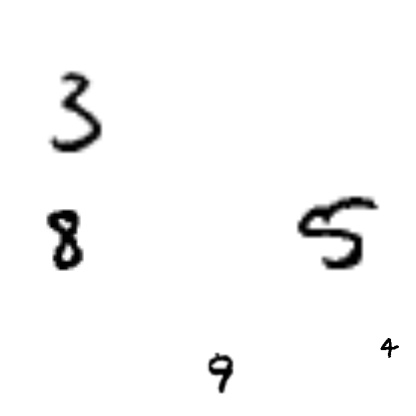 3
8 5
9 4